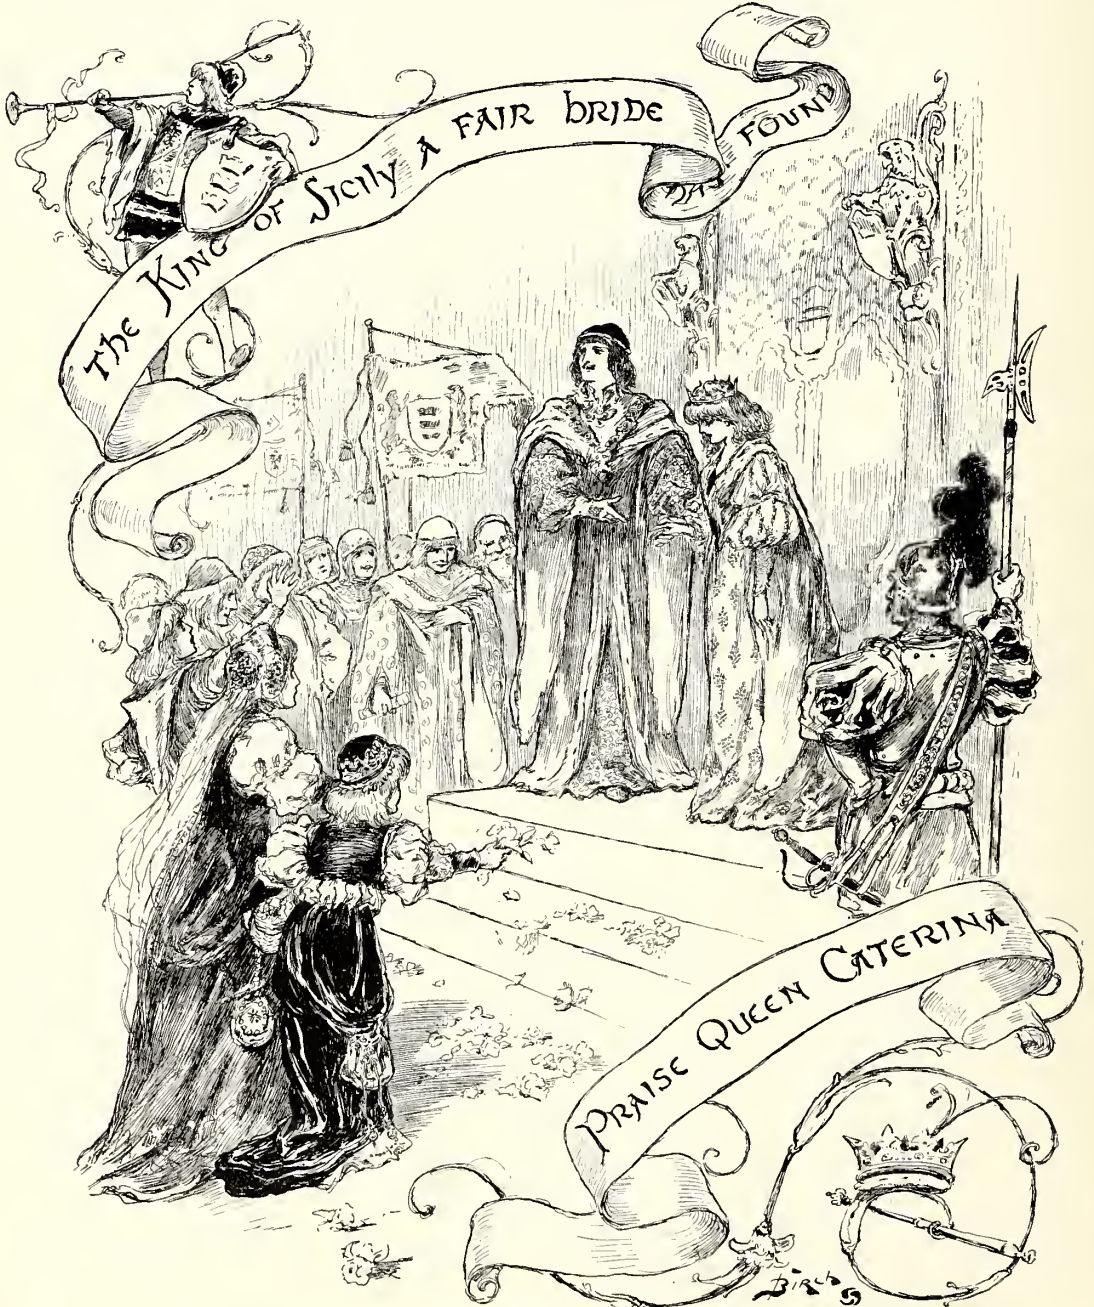 The King of Sicily A FAIR bride
FOUND
PRAISE QUEEN CATERINA
BIRCh